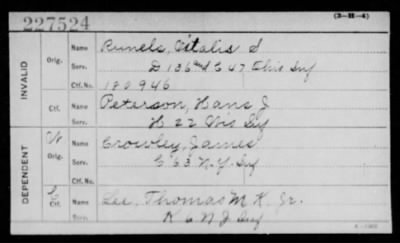 227524
(3-H-4)
INVALID
Orig.
Name Runels, Vitalis S
Serv. D 136 & C 47 Ohio Inf
Ctf. No. 180946
Ctf.
Name Peterson, Hans J
Serv. H 22 Wis Inf
DEPENDENT
W
Orig.
Name Crowley, James
Serv. C 63 N.Y. Inf
Ctf. No.
Ctf.
Name Lee, Thomas M K, Jr.
Serv. K 6 N J Inf